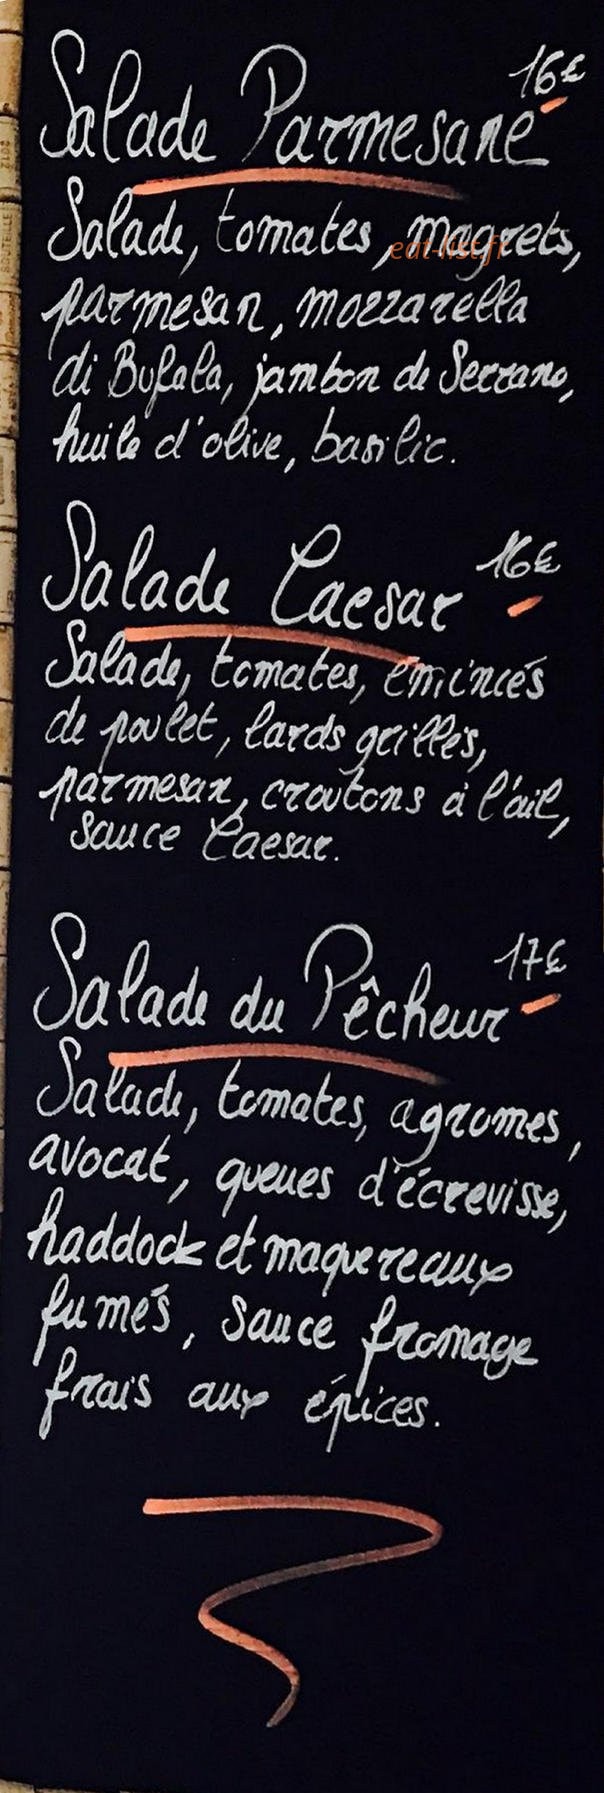 16€
Salade Parmesane
Salade, tomates, magrets,
eat-list.fr
parmesan, mozzarella
di Bufala, jambon de Serrano,
huile d'olive, basilic.
16€
Salade Caesar
Salade, tomates, émincés
de poulet, lards grillés,
parmesan, croutons à l'ail,
sauce Caesar.
17€
Salade du Pêcheur
Salade, tomates, agrumes,
avocat, queues d'écrevisse,
haddock et maquereaux
fumés, sauce fromage
frais aux épices.